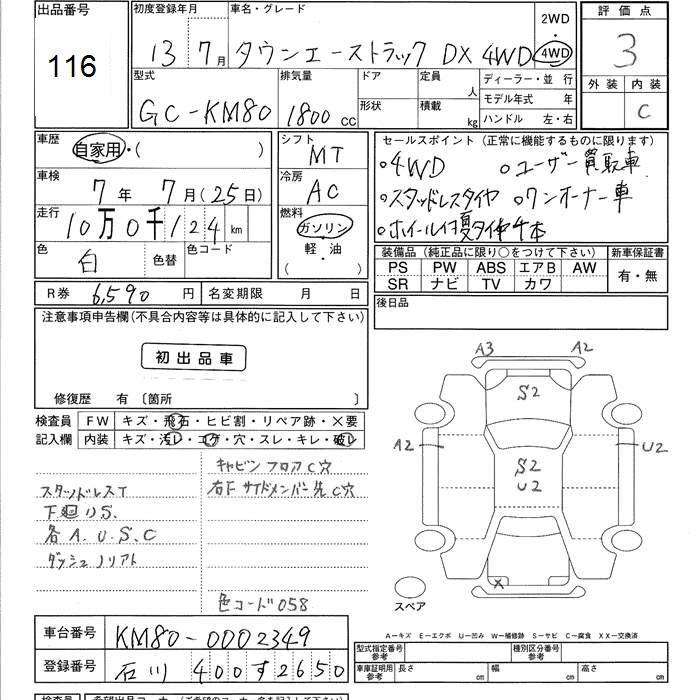 出品番号
116
初度登録年月 車名・グレード
13 7月 タウンエーストラック DX 4WD
2WD
4WD
評価点
3
外装 内装
C
型式
GC-KM80
排気量
1800 cc
ドア
形状
定員 人
積載 kg
ディーラー・並 行
モデル年式 年
ハンドル 左・右
車歴
自家用・( )
車検
7年 7月(25日)
走行
10万0千124 km
色
白
色替
色コード
シフト
MT
冷房
AC
燃料
ガソリン
軽・油
( )
セールスポイント (正常に機能するものに限ります)
○4WD ○ユーザー買取車
○スタッドレスタイヤ ○ワンオーナー車
○ホイール付夏タイヤ4本
装備品 (純正品に限り○をつけて下さい)
PS PW ABS エアB AW
SR ナビ TV カワ
新車保証書
有・無
R券 6,590 円 名変期限 月 日
後日品
注意事項申告欄(不具合内容等は具体的に記入して下さい)
初出品車
修復歴 有 〔箇所 〕
検査員
記入欄
FW キズ・飛石・ヒビ割・リペア跡・×要
内装 キズ・汚レ・コゲ・穴・スレ・キレ・破レ
キャビンフロアC穴
右F サイドメンバー先C穴
スタッドレスT
下廻りS.
各A.U.S.C
ダッシュノリアト
色コード058
A3 A2
S2
A2 U2
S2
U2
X
スペア
A-キズ E-エクボ U-凹み W-補修跡 S-サビ C-腐食 XX-交換済
車台番号 KM80-0002349
登録番号 石川 400す2650
型式指定番号
参考
種別区分番号
参考
車庫証明用
参考
長さ cm 幅 cm 高さ cm